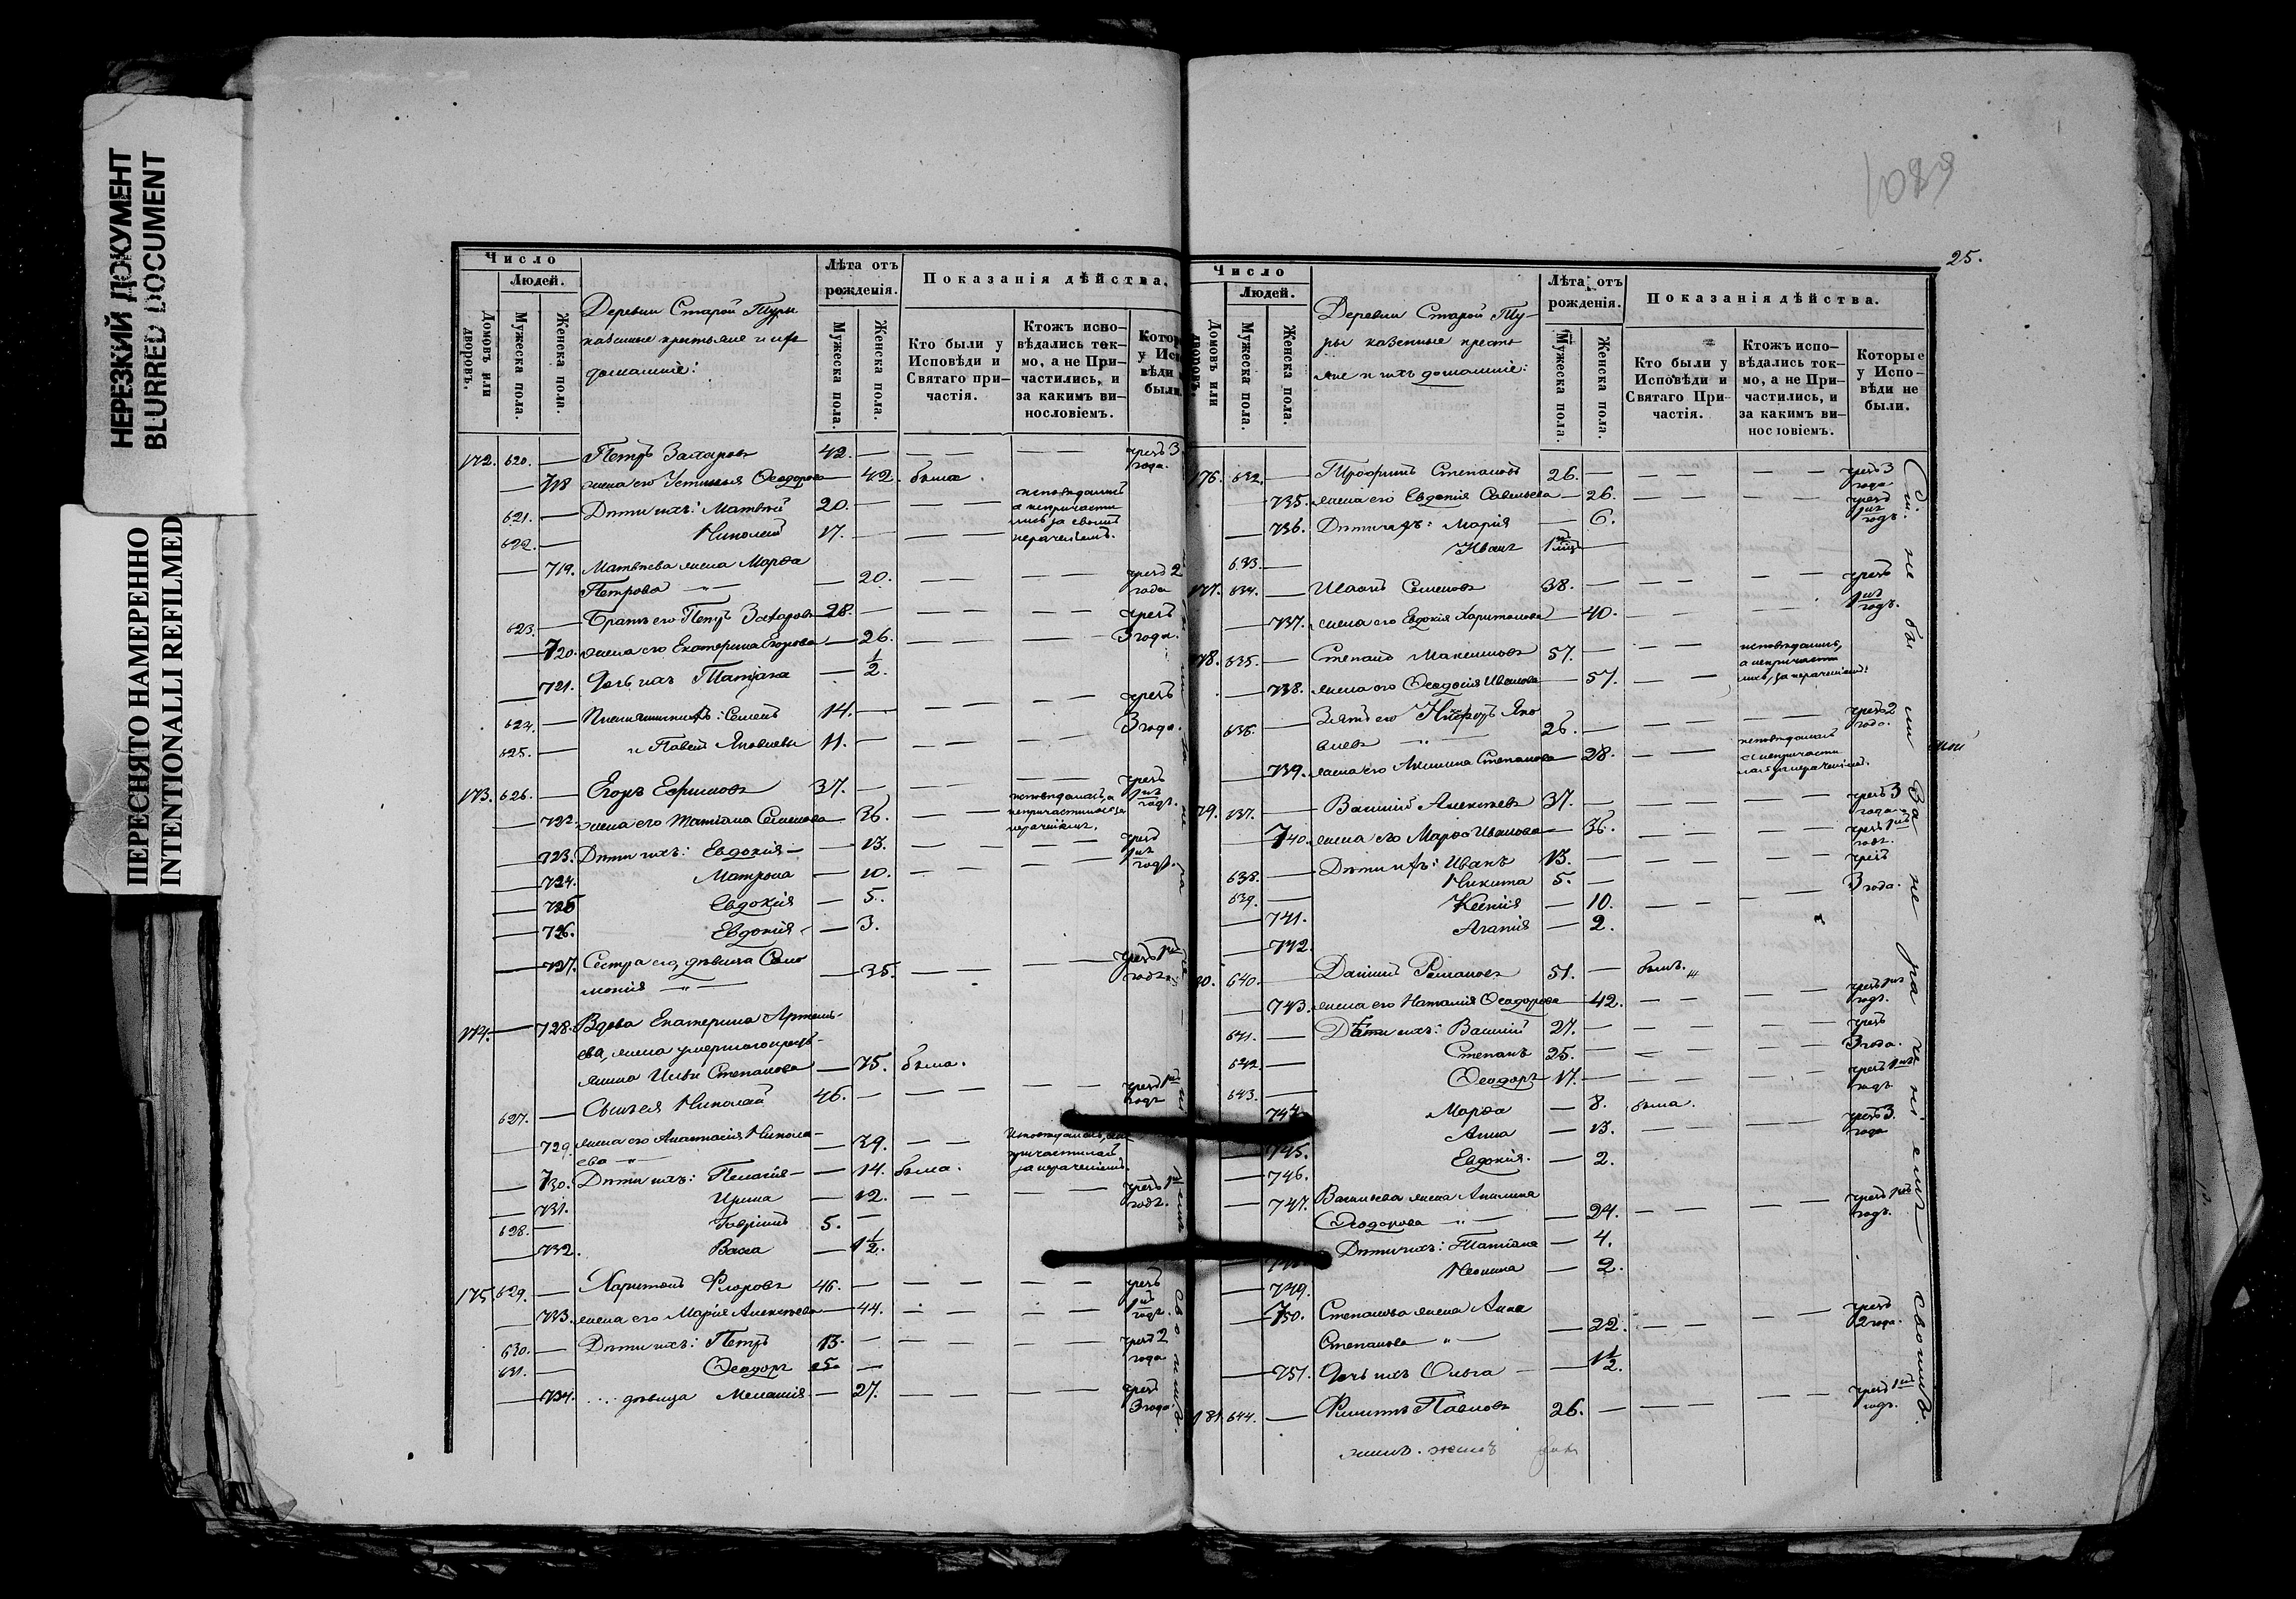 НЕРЕЗКИЙ ДОКУМЕНТ
BLURRED DOCUMENT
ПЕРЕСНЯТО НАМЕРЕННО
INTENTIONALLI REFILMED
Число
Людей.
Домовъ или дворовъ.
Мужеска пола.
Женска пола.
Деревни Старой Туры
казенные крестьяне и ихъ
домашніе:
Лѣта отъ рожденія.
Мужеска пола.
Женска пола.
Показанія дѣйства.
Кто были у Исповѣди и Святаго причастія.
Ктожъ исповѣдались токмо, а не Причастились, и за какимъ винословіемъ.
172. 620. — Петръ Захаровъ 42. — — — чрезъ 3 года.
— 718 жена его Устинья Ѳеодорова — 42. была.
621. — Дѣти ихъ: Матвѣй 20. —
622. — Николай 17. —
— 719. Матвѣева жена Марѳа
Петрова — 20. — — чрезъ 2 года
623. — Братъ его Петръ Захаровъ 28. — — — чрезъ
— 720. жена его Екатерина Егорова — 26. — — 3 года.
— 721. Дочь ихъ Татіана — 1/2.
624. — Племянники ихъ: Семенъ 14. — — — чрезъ
625. — и Павелъ Яковлевы 11. — — — 3 года.
173. 626. — Егоръ Ефимовъ 37. — — — чрезъ 1нъ годъ.
— 722. жена его Татіана Семенова — 36. —
— 723. Дѣти ихъ: Евдокія — 13. — — чрезъ
— 724. Матрона — 10. — — 1нъ годъ.
— 725 Евдокія — 5.
— 726. Евдокія — 3.
— 727. Сестра его, дѣвица Соло
монія — 35. — — чрезъ 1нъ годъ.
174. — 728. Вдова Екатерина Артемь-
ева, жена умершаго кресть-
янина Ильи Степанова — 75. была.
627. — Сынъ ея Николай 46. — — — чрезъ 1нъ годъ
— 729. жена его Анастасія Никола-
ева — 39. —
— 730. Дѣти ихъ: Пелагія — 14. была.
— 731. Ирина — 12. — — чрезъ 1нъ годъ.
628. — Гавріилъ 5. —
— 732. Васса — 1 1/2.
175. 629. — Харитонъ Флоровъ 46. — — — чрезъ
— 733. жена его Марія Алексѣева — 44. — — 1нъ годъ.
630. — Дѣти ихъ: Петръ 13. — — — чрезъ 2 года
631. — Ѳеодоръ 5 —
— 734. дѣвица Меланія — 27. — — чрезъ 3 года.
25.
Число
Людей.
Домовъ или дворовъ.
Мужеска пола.
Женска пола.
Деревни Старой Ту-
ры казенные кресть
яне и ихъ домашніе:
Лѣта отъ рожденія.
Мужеска пола.
Женска пола.
Показанія дѣйства.
Кто были у Исповѣди и Святаго Причастія.
Ктожъ исповѣдались токмо, а не Причастились, и за какимъ винословіемъ.
Которые у Исповѣди не были.
176. 632. — Трофимъ Степановъ 26. — — — чрезъ 3 года
— 735. жена его Евдокія Савельева — 26. — — чрезъ 1нъ годъ.
— 736. Дѣти ихъ: Марія — 6.
633. — Иванъ —
177. 634. — Семеновъ 38. — — — чрезъ
— 737. жена его Евдокія Харитонова — 40. — — 1нъ годъ.
178. 635. — Степанъ Максимовъ 57. — —
— 738. жена его Ѳеодосія Иванова — 57. —
636. — Зять его Никифоръ Яко
влевъ 26. — — — чрезъ 2 года.
— 739. жена его Акилина Степанова — 28. —
179. 637. — Василій Алексѣевъ 37. — — — чрезъ 3 года
— 740. жена его Марѳа Иванова — 36. — — чрезъ 1нъ годъ.
638. — Дѣти ихъ: Иванъ 13. — — — чрезъ
639. — Никита 5. — 3 года.
— 741. Ксенія — 10. — —
— 742. Агапія — 2.
180. 640. — Даніилъ Романовъ 51. — былъ.
— 743. жена его Наталія Ѳеодорова — 42. — — чрезъ 1нъ годъ.
641. — Дѣти ихъ: Василій 27. — — — чрезъ
642. — Степанъ 25. — — — 3 года.
643. — Ѳеодоръ 17. — — — чрезъ 1нъ годъ
744. Марѳа — 8. была.
— 745. Анна — 13. — — чрезъ 3 года
— 746. Евдокія — 2.
— 747. Васильева жена Акилина
Ѳеодорова — 24. — — чрезъ 1нъ годъ.
Дѣти ихъ: Татіана — 4.
— 749. Неонила — 2.
— 750. Степанова жена Анна
Степанова — 22. — — чрезъ 2 года.
— 751. Дочь ихъ Ольга — 1 1/2.
181. 644. — Филиппъ Павловъ 26. — — — чрезъ 1нъ годъ.